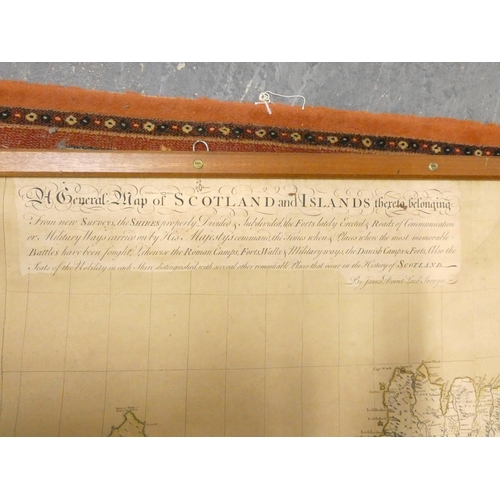 A General Map of SCOTLAND and ISLANDS thereto belonging
From new Surveys, the SHIRES properly Divided & Subdivided, the Forts lately Erected & Roads of Communication
or Military Ways carried on by His Majesty's command, the Times when & Places where the most memorable
Battles have been fought, likewise the Roman Camps, Forts, Walls & Military ways, the Danish Camps & Forts, Also the
Seats of the Nobility in each Shire distinguished, with several other remarkable Places that occur in the History of SCOTLAND
By James Dorret Land Surveyor
Cape Wrath